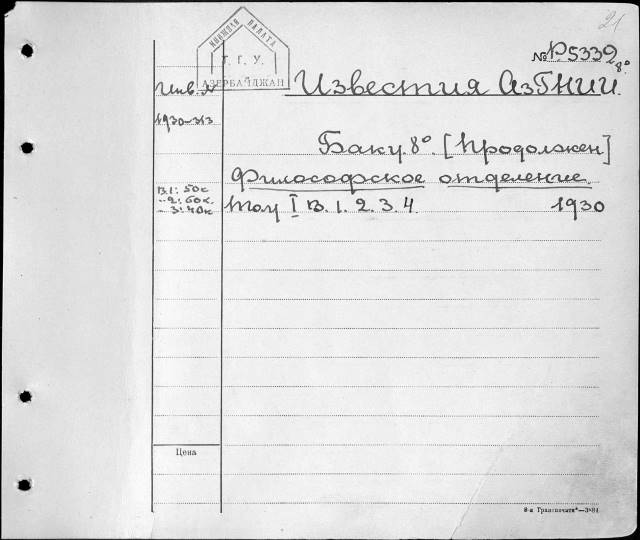 21
КНИЖНАЯ ПАЛАТА
Г. Г. У.
АЗЕРБАЙДЖАН
№ P5339 8°
Инв. №
Известия АзГНИИ.
1930-313
Баку. 8°. [Продолжен]
Философское отделение.
В.1: 50к
-„2: 60к.
- 3: 40к
Том I В. 1. 2. 3. 4. 1930
Цена